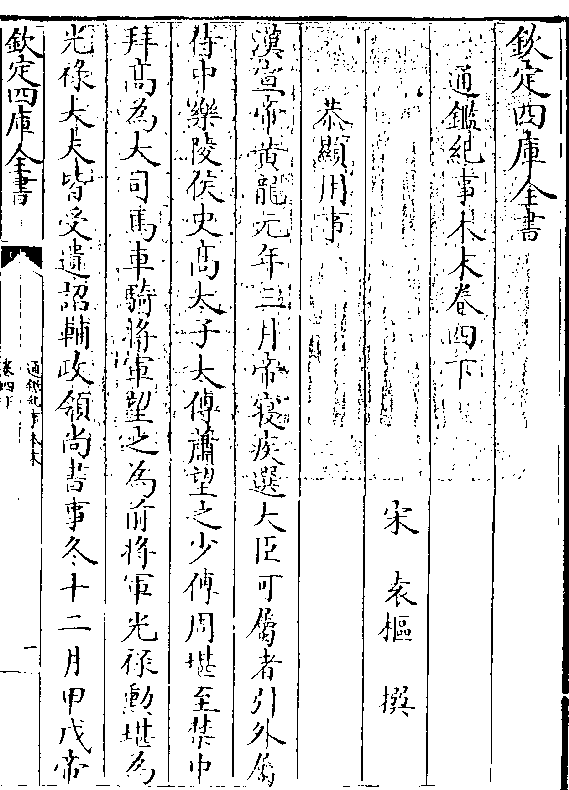 欽定四庫全書
通鑑紀事本末卷四下
宋 袁樞 撰
恭顯用事
漢宣帝黃龍元年三月帝寢疾選大臣可屬者引外屬
侍中樂陵侯史髙太子太傅蕭望之少傅周堪至禁中
拜髙為大司馬車騎將軍望之為前將軍光祿勲堪為
光祿大夫皆受遺詔輔政領尚書事冬十二月甲戌帝
欽定四庫全書
通鑑紀事本末
卷四下
一